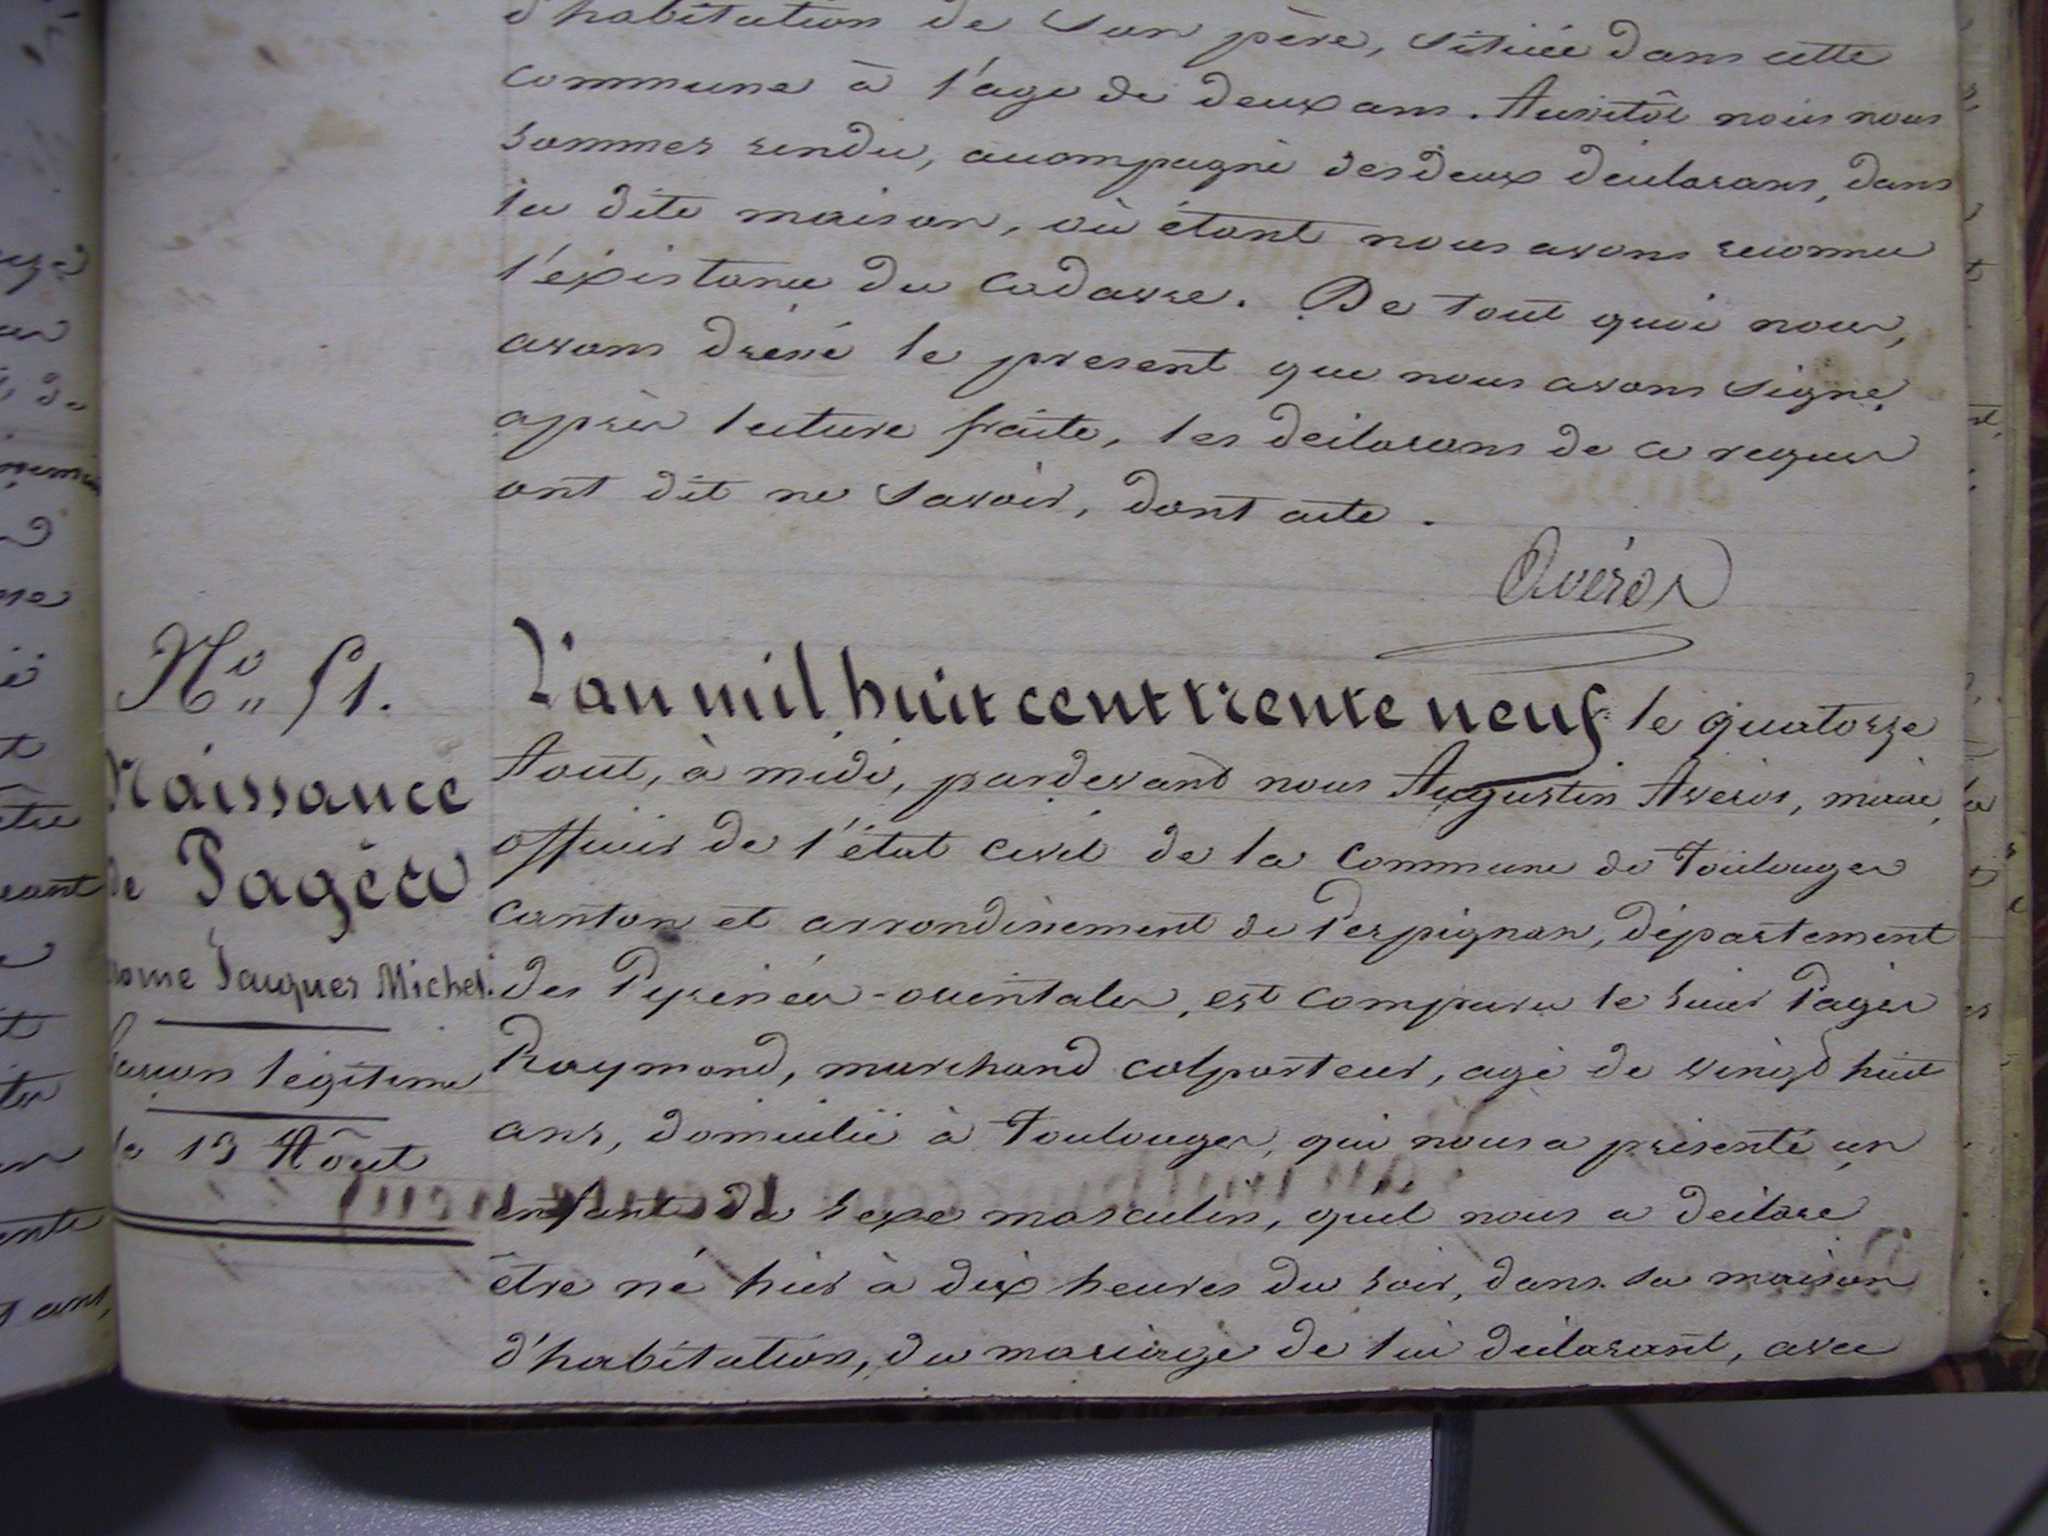 d'habitation de son père, située dans cette
commune à l'age de deux ans. Aussitôt nous nous
sommes rendu, accompagné des deux déclarans, dans
la dite maison, où étant nous avons reconnu
l'éxistance du cadavre. De tout quoi nous,
avons dréssé le present que nous avons signé,
après lecture faite, les declarans de ce requis
ont dit ne savoir, dont acte.
Avéros
No 51.
Naissance
de Pagés
Jaques Michel.
Garçon légitime
le 13 Aôut
L'an mil huit cent trente neuf le quatorze
Aout, à midi, pardevant nous Augustin Averos, maire,
officier de l'état civil de la commune de Toulouges
canton et arrondissement de Perpignan, département
des Pyrénées-orientales, est comparu le sieur Pagès
Raymond, marchand colporteur, agé de vingt huit
ans, domicilié à Toulouges, qui nous a présenté un
enfant du sexe masculin, qu'il nous a déclaré
être né hier à dix heures du soir, dans sa maison
d'habitation, du mariage de lui déclarant, avec